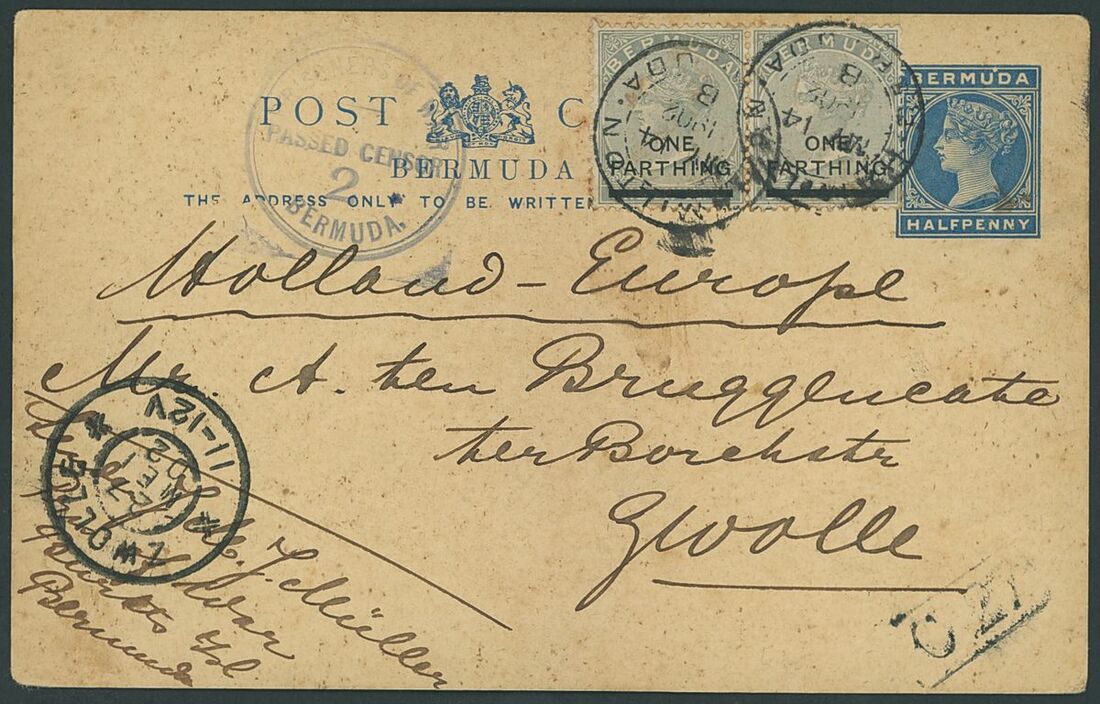 POST C
BERMUDA
THE ADDRESS ONLY TO BE WRITTEN
PRISONERS OF
PASSED CENSOR
2
BERMUDA.
BERMUDA
ONE
FARTHING
BERMUDA
ONE
FARTHING
HAMILTON
BERMUDA
14
1902
B
BERMUDA
HALFPENNY
Holland - Europe
Mr. A. ten Bruggencate
ter Borchstr
Zwolle
ZWOLLE
27
02
11-12V
J. Müller
Bermuda